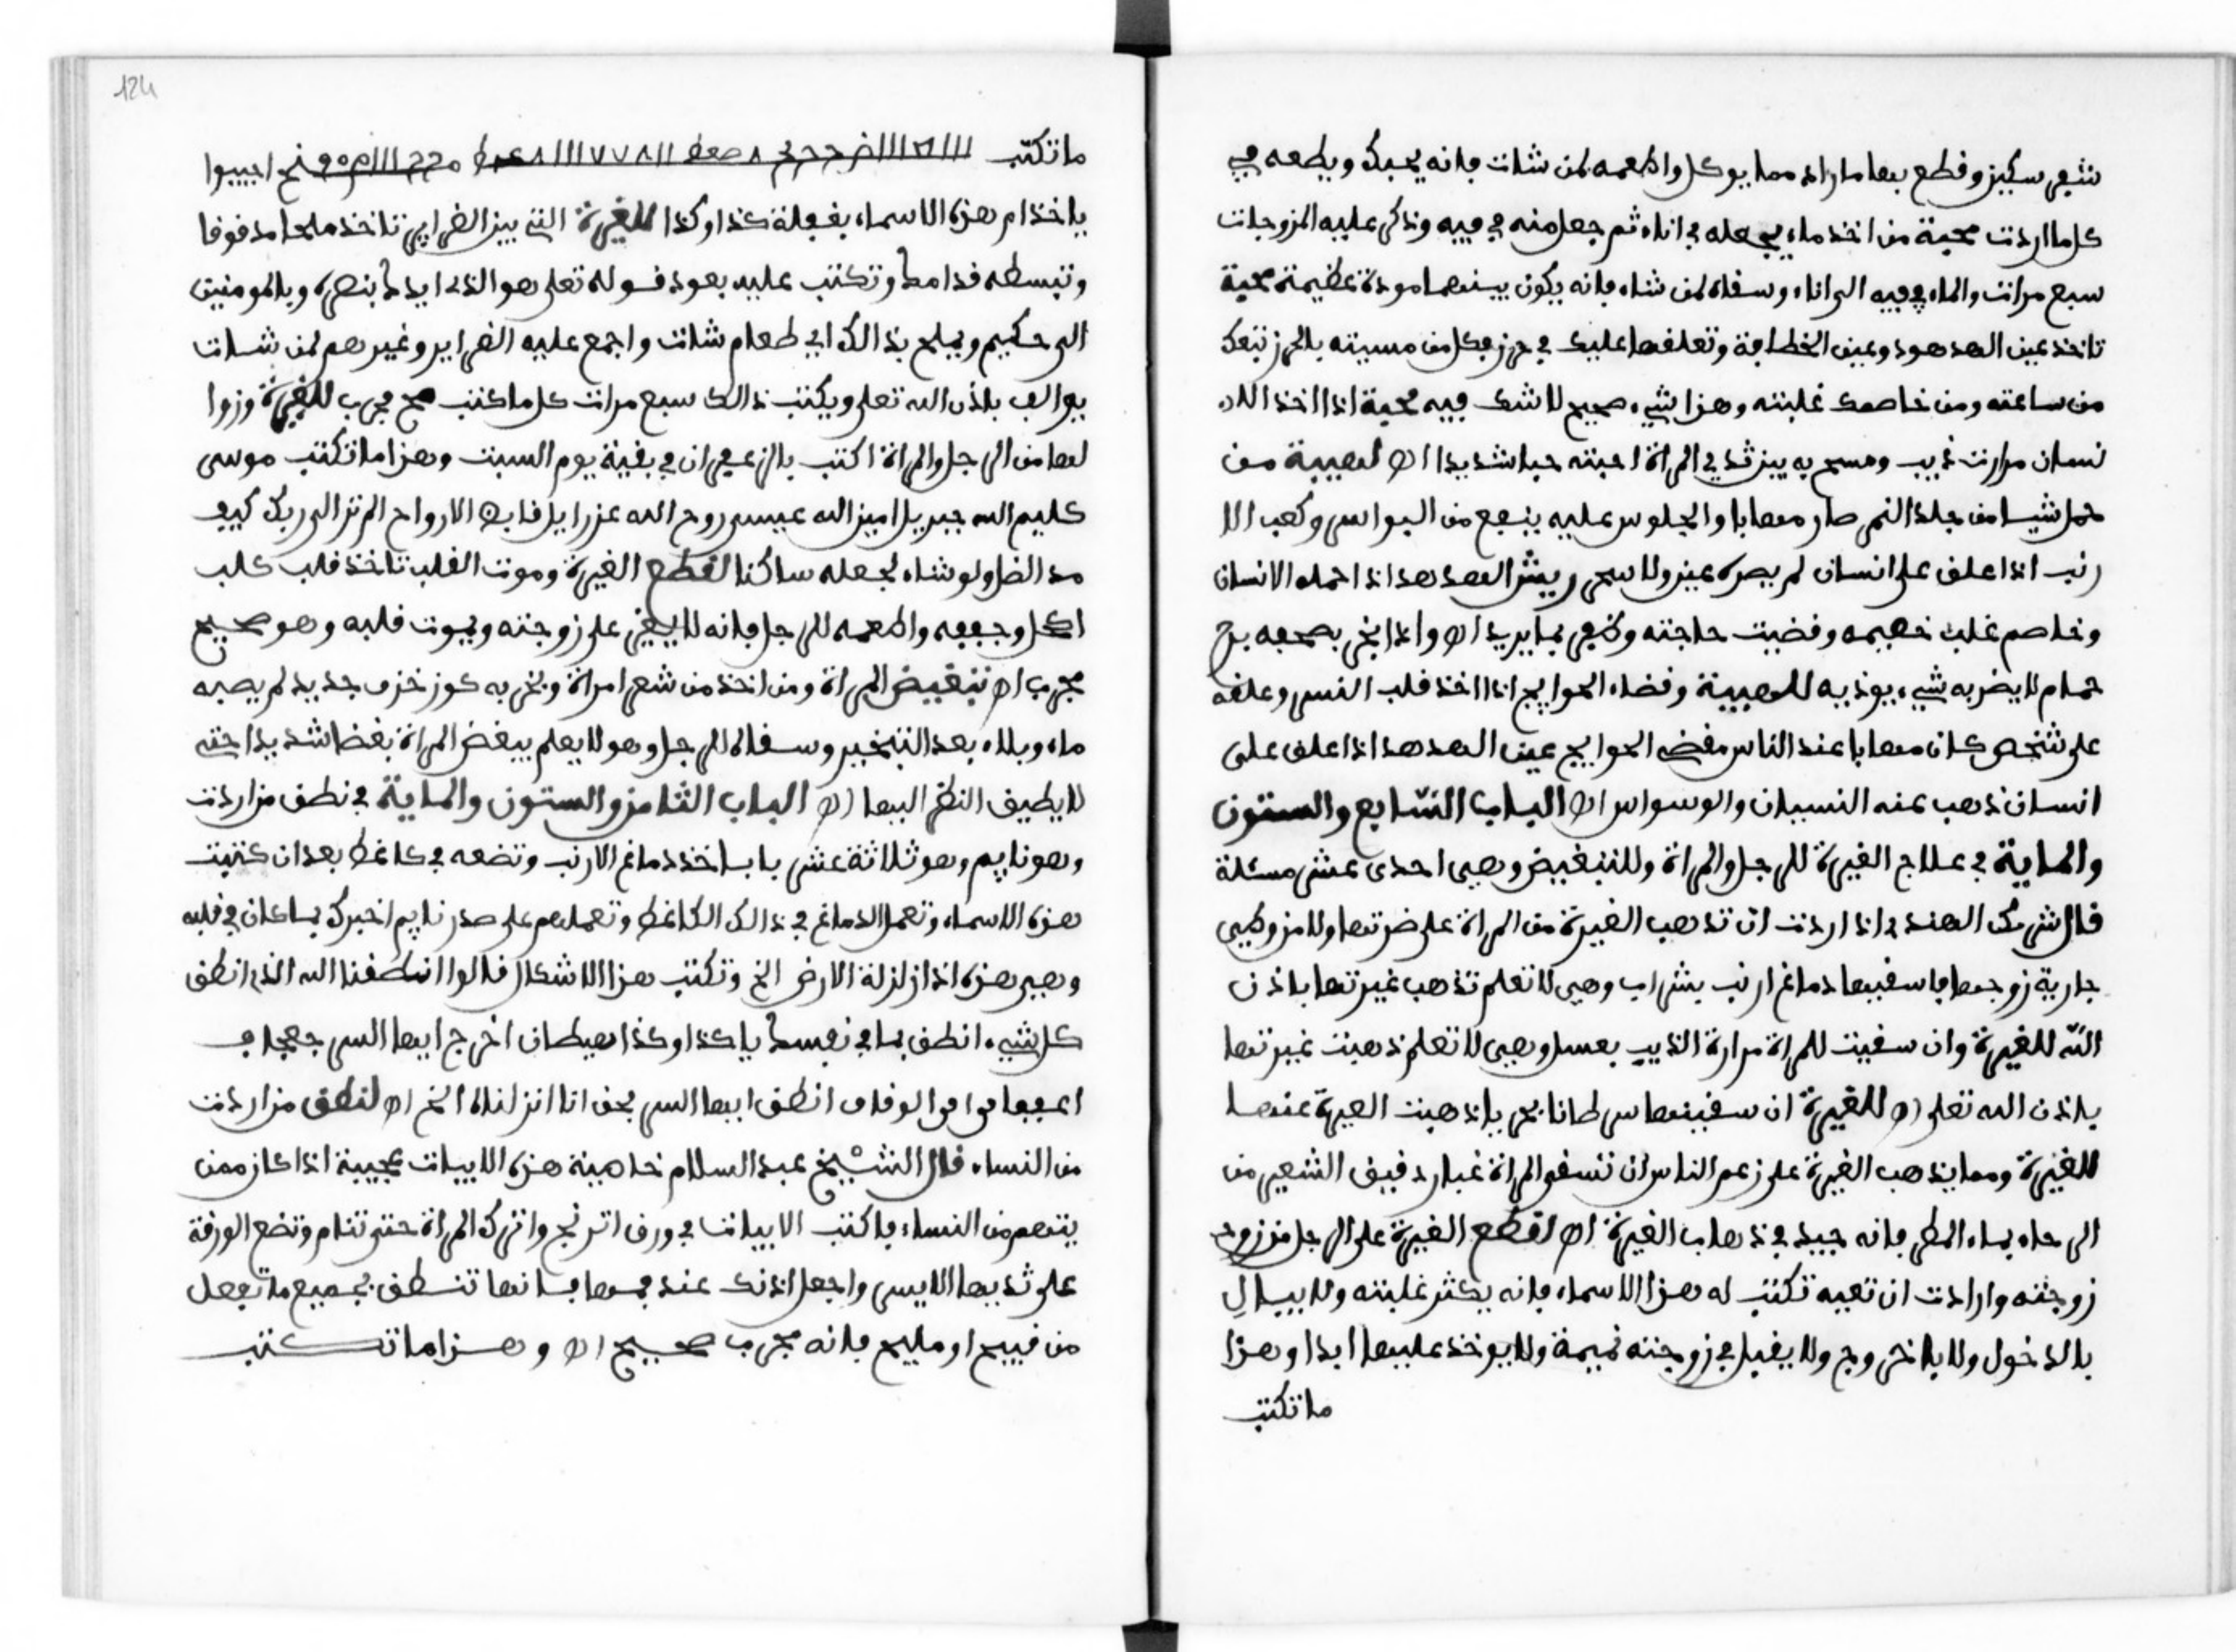 شعر سكين وقطع بها ما راد مما يوكل واطعمه لمن شات فانه يحبك ويطعه في
كل ما اردت محبة من اخذ ماء يجعله في اناء ثم جعل منه في فيه وذكر عليه المزوجات
سبع مرات والماء في فيه الى اناء وسقاه لمن شاء فانه يكون بينهما مودة عظيمة محبة
تاخذ عين الهدهود وعين الخطافة وتعلقها عليك في حرز فكل من مسيته بالحرز تبعك
من ساعته ومن خاصمك غلبته وهزا شيء صحيح لا شك فيه محبة اذا اخذ الا
نسان مرارت ذيب ومسح به بين ثدي المراة احبته حبا شديدا اه لهيبة من
حمل شيا من جلد النمر صار مهابا والجلوس عليه ينفع من البواسر وكعب الا
رنب اذا علق على انسان لم يضره عين ولا سحر ريش الهدهد اذا احمله الانسان
وخاصم غلب خصيمه وقضيت حاجته وظفر بما يريد اه واذا بخر بصحفه برج
حمام لا يضر به شيء يوذيه للهيبة وقضاء الحوايج اذا اخذ قلب النسر وعلقه
على شخص كان مهابا عند الناس مقضي الحوايج عين الهدهد اذا علق على
انسان ذهب عنه النسيان والوسواس اه الباب السابع والستون
والماية في علاج الغيرة للرجل والمراة وللتبغيض وهي احدى عشر مسئلة
قال شرمك الهندي اذا اردت ان تذهب الغيرة من المراة على ضرتها ولا من وطيى
جارية زوجها فاسقيها دماغ ارنب بشراب وهي لا تعلم تذهب غيرتها باذن
الله للغيرة وان سقيت للمراة مرارة الذيب بعسل وهي لا تعلم ذهبت غيرتها
باذن الله تعلى اه للغيرة ان سقيتها سرطانا بحريا ذهبت الغيرة عنها
للغيرة ومما يذهب الغيرة على زعم الناس ان تسقى المراة غبار دقيق الشعير من
الرحاه بماء المطر فانه جيد في ذهاب الغيرة اه لقطع الغيرة على الرجل من زوجـ
زوجته وارادت ان تعيه تكتب له هزا الاسماء فانه يكثر غلبته ولا يبال
بالدخول ولا بالخروج ولا يقبل في زوجته نميمة ولا يوخذ عليها ابدا وهزا
ما تكتب
124
ما تكتب
ياخدام هزه الاسماء بفعلة كذا وكذا للغيرة التي بين الضراير تاخذ ملحا مدقوقا
وتبسطه قدامك وتكتب عليه بعود قوله تعلى هو الذي ايدك بنصره وبالمومنين
الى حكيم ويملح بذالك اي طعام شات واجمع عليه الضراير وغيرهم لمن شات
يوالف باذن الله تعلى ويكتب ذالك سبع مرات كل ما كتب صح مجرب للغيرة وزوا
لها من الرجل والمراة اكتب بالزعفران في بقية يوم السبت وهزا ما تكتب موسى
كليم الله جبريل امين الله عيسى روح الله عزرايل قابض الارواح الم تر الى ربك كيف
مد الظل ولو شاء لجعله ساكنا لقطع الغيرة وموت القلب تاخذ قلب كلب
اكحل وجففه واطعمه للرجل فانه لا يغير على زوجته ويموت قلبه وهو صحيح
مجرب اه تبغيض المراة ومن اخذ من شعر امراة وبخر به كوز خزف جديد لم يصبه
ماء وبلاه بعد التبخير وسقاه للرجل وهو لا يعلم يبغض المراة بغضا شديدا حتى
لا يطيق النظر اليها اه الباب الثامن والستون والماية في نطق من اردت
وهو نايم وهو ثلاثة عشر بابا خذ دماغ الارنب وتضعه في كاغط بعد ان كتبت
هزه الاسماء وتعمل الدماغ في ذالك الكاغط وتعملهم على صدر نايم اخبرك بما كان في قلبه
وهي هزه اذا زلزلة الارض الخ وتكتب هزا الاشكال قالوا انطقنا الله الذي انطق
كل شيء انطق بما في نفسك يا كذا وكذا هيطان اخرج ايها السر
انطق ايها السر بحق انا انزلناه الخ اه لنطق من اردت
من النساء قال الشيخ عبد السلام خاهبنة هزه الابيات عجيبة اذا كان ممن
يتهم من النساء فاكتب الابيات في ورق اترنج واترك المراة حتى تنام وتضع الورقة
على ثديها الايسر واجعل اذنك عند فمها فانها تنطق بجميع ما تفعل
من قبيح او مليح فانه مجرب صحيح اه وهزا ما تكتب